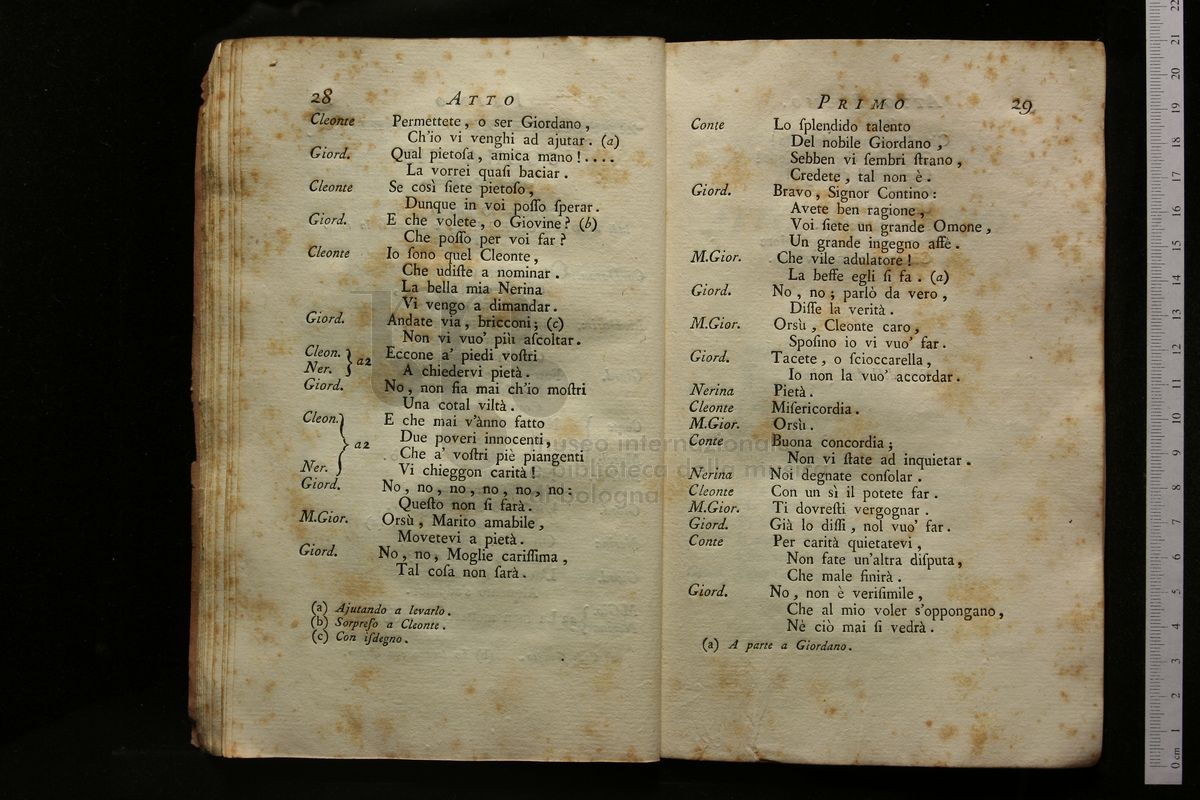 28 ATTO
Cleonte Permettete, o ser Giordano,
Ch'io vi venghi ad ajutar. (a)
Giord. Qual pietoſa, amica mano!....
La vorrei quaſi baciar.
Cleonte Se così ſiete pietoſo,
Dunque in voi poſſo ſperar.
Giord. E che volete, o Giovine? (b)
Che poſſo per voi far?
Cleonte Io ſono quel Cleonte,
Che udiſte a nominar.
La bella mia Nerina
Vi vengo a dimandar.
Giord. Andate via, bricconi; (c)
Non vi vuo' più aſcoltar.
Cleon. } a 2 Eccone a' piedi voſtri
Ner. A chiedervi pietà.
Giord. No, non ſia mai ch'io moſtri
Una cotal viltà.
Cleon. E che mai v'ànno fatto
Due poveri innocenti,
} a 2 Che a' voſtri piè piangenti
Ner. Vi chieggon carità!
Giord. No, no, no, no, no, no:
Queſto non ſi farà.
M.Gior. Orsù, Marito amabile,
Movetevi a pietà.
Giord. No, no, Moglie cariſſima,
Tal coſa non ſarà.
(a) Ajutando a levarlo.
(b) Sorpreſo a Cleonte.
(c) Con iſdegno.
PRIMO 29
Conte Lo ſplendido talento
Del nobile Giordano,
Sebben vi ſembri ſtrano,
Credete, tal non è.
Giord. Bravo, Signor Contino:
Avete ben ragione,
Voi ſiete un grande Omone,
Un grande ingegno affè.
M.Gior. Che vile adulatore!
La beffe egli ſi fa. (a)
Giord. No, no; parlò da vero,
Diſſe la verità.
M.Gior. Orsù, Cleonte caro,
Spoſino io vi vuo' far.
Giord. Tacete, o ſcioccarella,
Io non la vuo' accordar.
Nerina Pietà.
Cleonte Miſericordia.
M.Gior. Orsù.
Conte Buona concordia;
Non vi ſtate ad inquietar.
Nerina Noi degnate conſolar.
Cleonte Con un sì il potete far.
M.Gior. Ti dovreſti vergognar.
Giord. Già lo diſſi, nol vuo' far.
Conte Per carità quietatevi,
Non fate un'altra diſputa,
Che male finirà.
Giord. No, non è veriſimile,
Che al mio voler s'oppongano,
Nè ciò mai ſi vedrà.
(a) A parte a Giordano.
museo internazionale
e biblioteca della musica
di bologna
0 cm 1 2 3 4 5 6 7 8 9 10 11 12 13 14 15 16 17 18 19 20 21 22